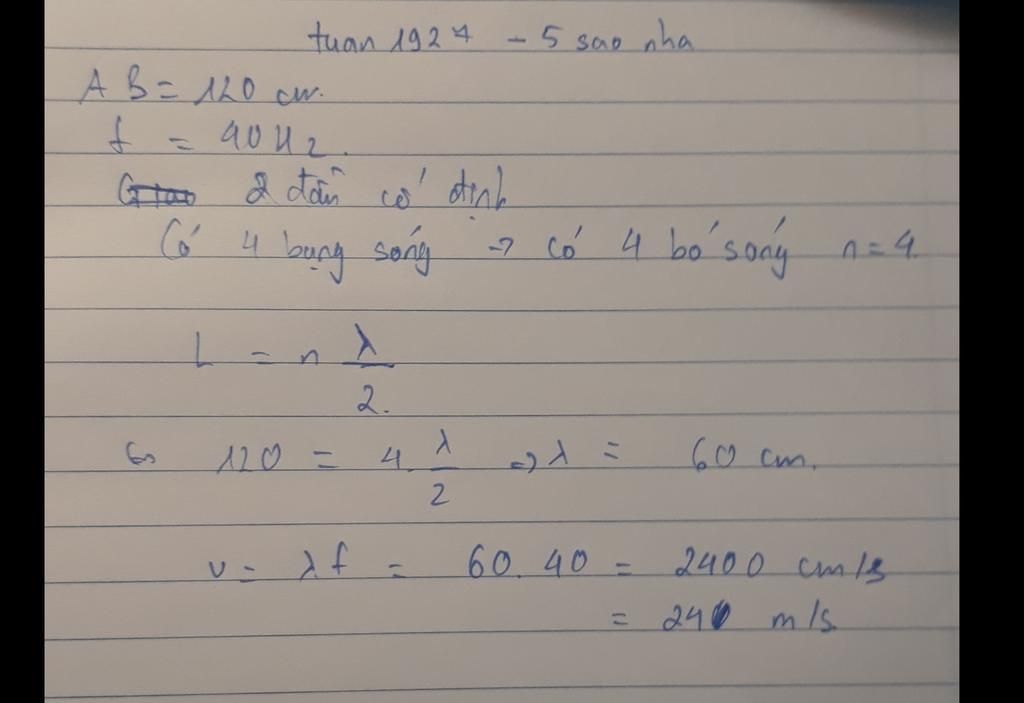 tuan 1927 - 5 sao nha
AB = 120 cm.
f = 40Hz.
2 đầu cố định
Có 4 bụng sóng → có 4 bó sóng n = 4.
L = n λ/2.
⇔ 120 = 4. λ/2 ⇒ λ = 60 cm.
v = λf = 60.40 = 2400 cm/s
= 24 m/s.